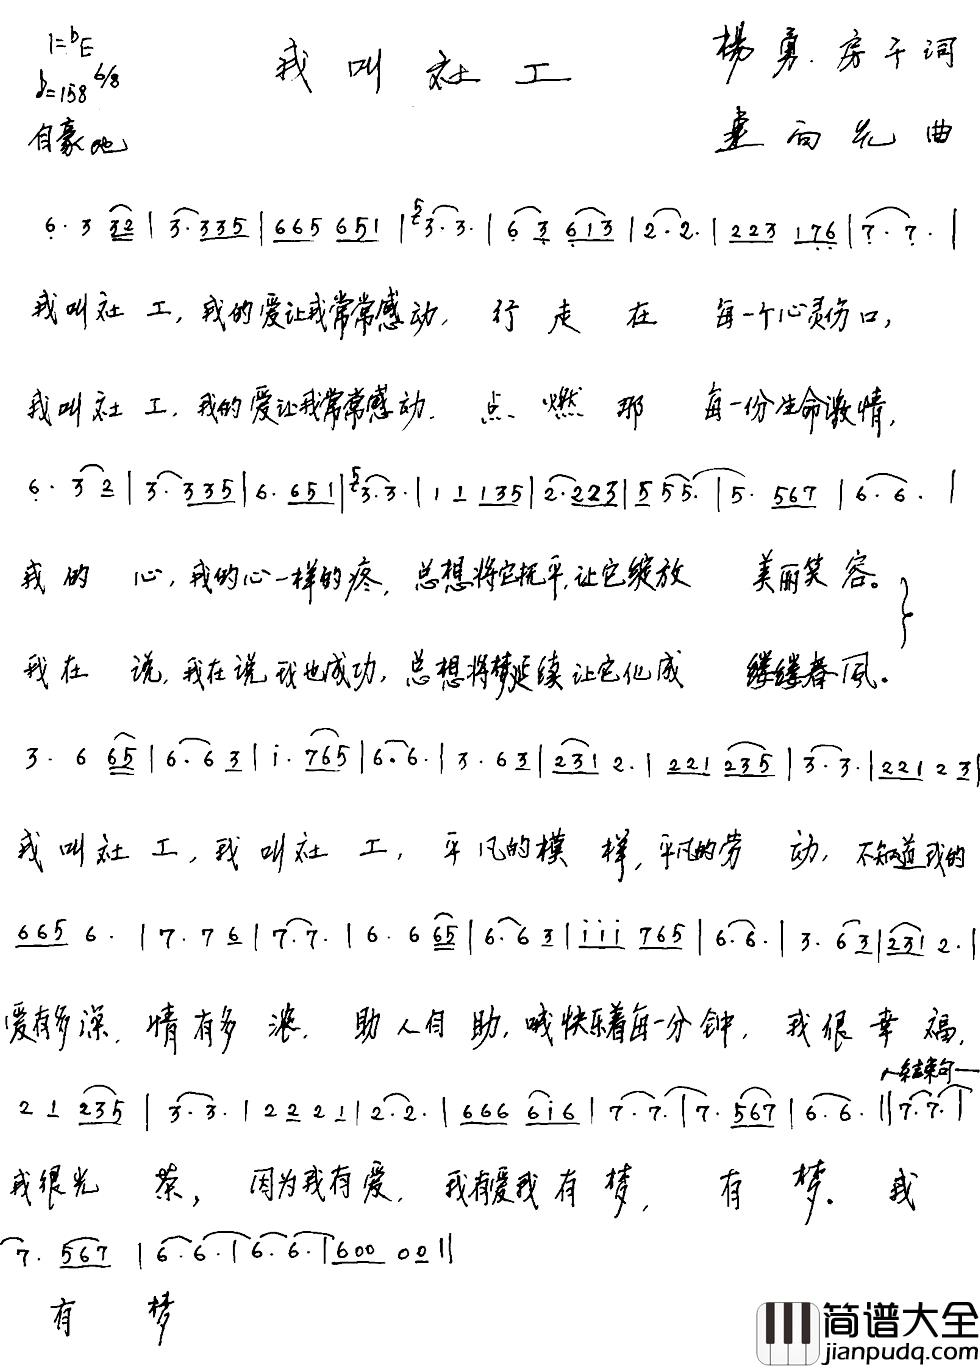 1=ᵇE
我叫社工
楊勇.房千词
♪=158 6/8
自豪地
曲
6·3 32 | 3·335 | 665 651 | 3·3· | 63 613 | 2·2· | 223 176 | 7·7· |
我叫社工,我的爱让我常常感动,行走在每一个心灵伤口,
我叫社工,我的爱让我常常感动.点燃那每一份生命激情,
6·32 | 3·335 | 6·651 | 3·3· | 11 135 | 2·223 | 555· | 5·567 | 6·6· |
我的心,我的心一样的疼,总想将它抚平,让它绽放美丽笑容。
我在说,我在说我也成功,总想将梦延续让它化成缕缕春风。
3·6 65 | 6·63 | i·765 | 6·6· | 3·63 | 231 2· | 221 235 | 3·3· | 221 23 |
我叫社工,我叫社工,平凡的模样,平凡的劳动,不知道我的
665 6· | 7·76 | 7·7· | 6·6 65 | 6·63 | iii 765 | 6·6· | 3·63 | 231 2· |
爱有多深,情有多浓.助人自助,喊快乐着每一分钟,我很幸福,
结束句
21 235 | 3·3· | 2221 | 2·2· | 666 6i6 | 7·7· | 7·567 | 6·6· || 7·7· |
我很光荣,因为我有爱.我有爱我有梦,有梦。我
7·567 | 6·6· | 6·6· | 600 00 ||
有梦
简谱大全
jianpudq.com